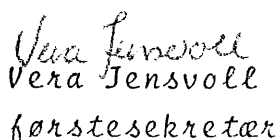 Vera Jensvoll
Vera Jensvoll
førstesekretær